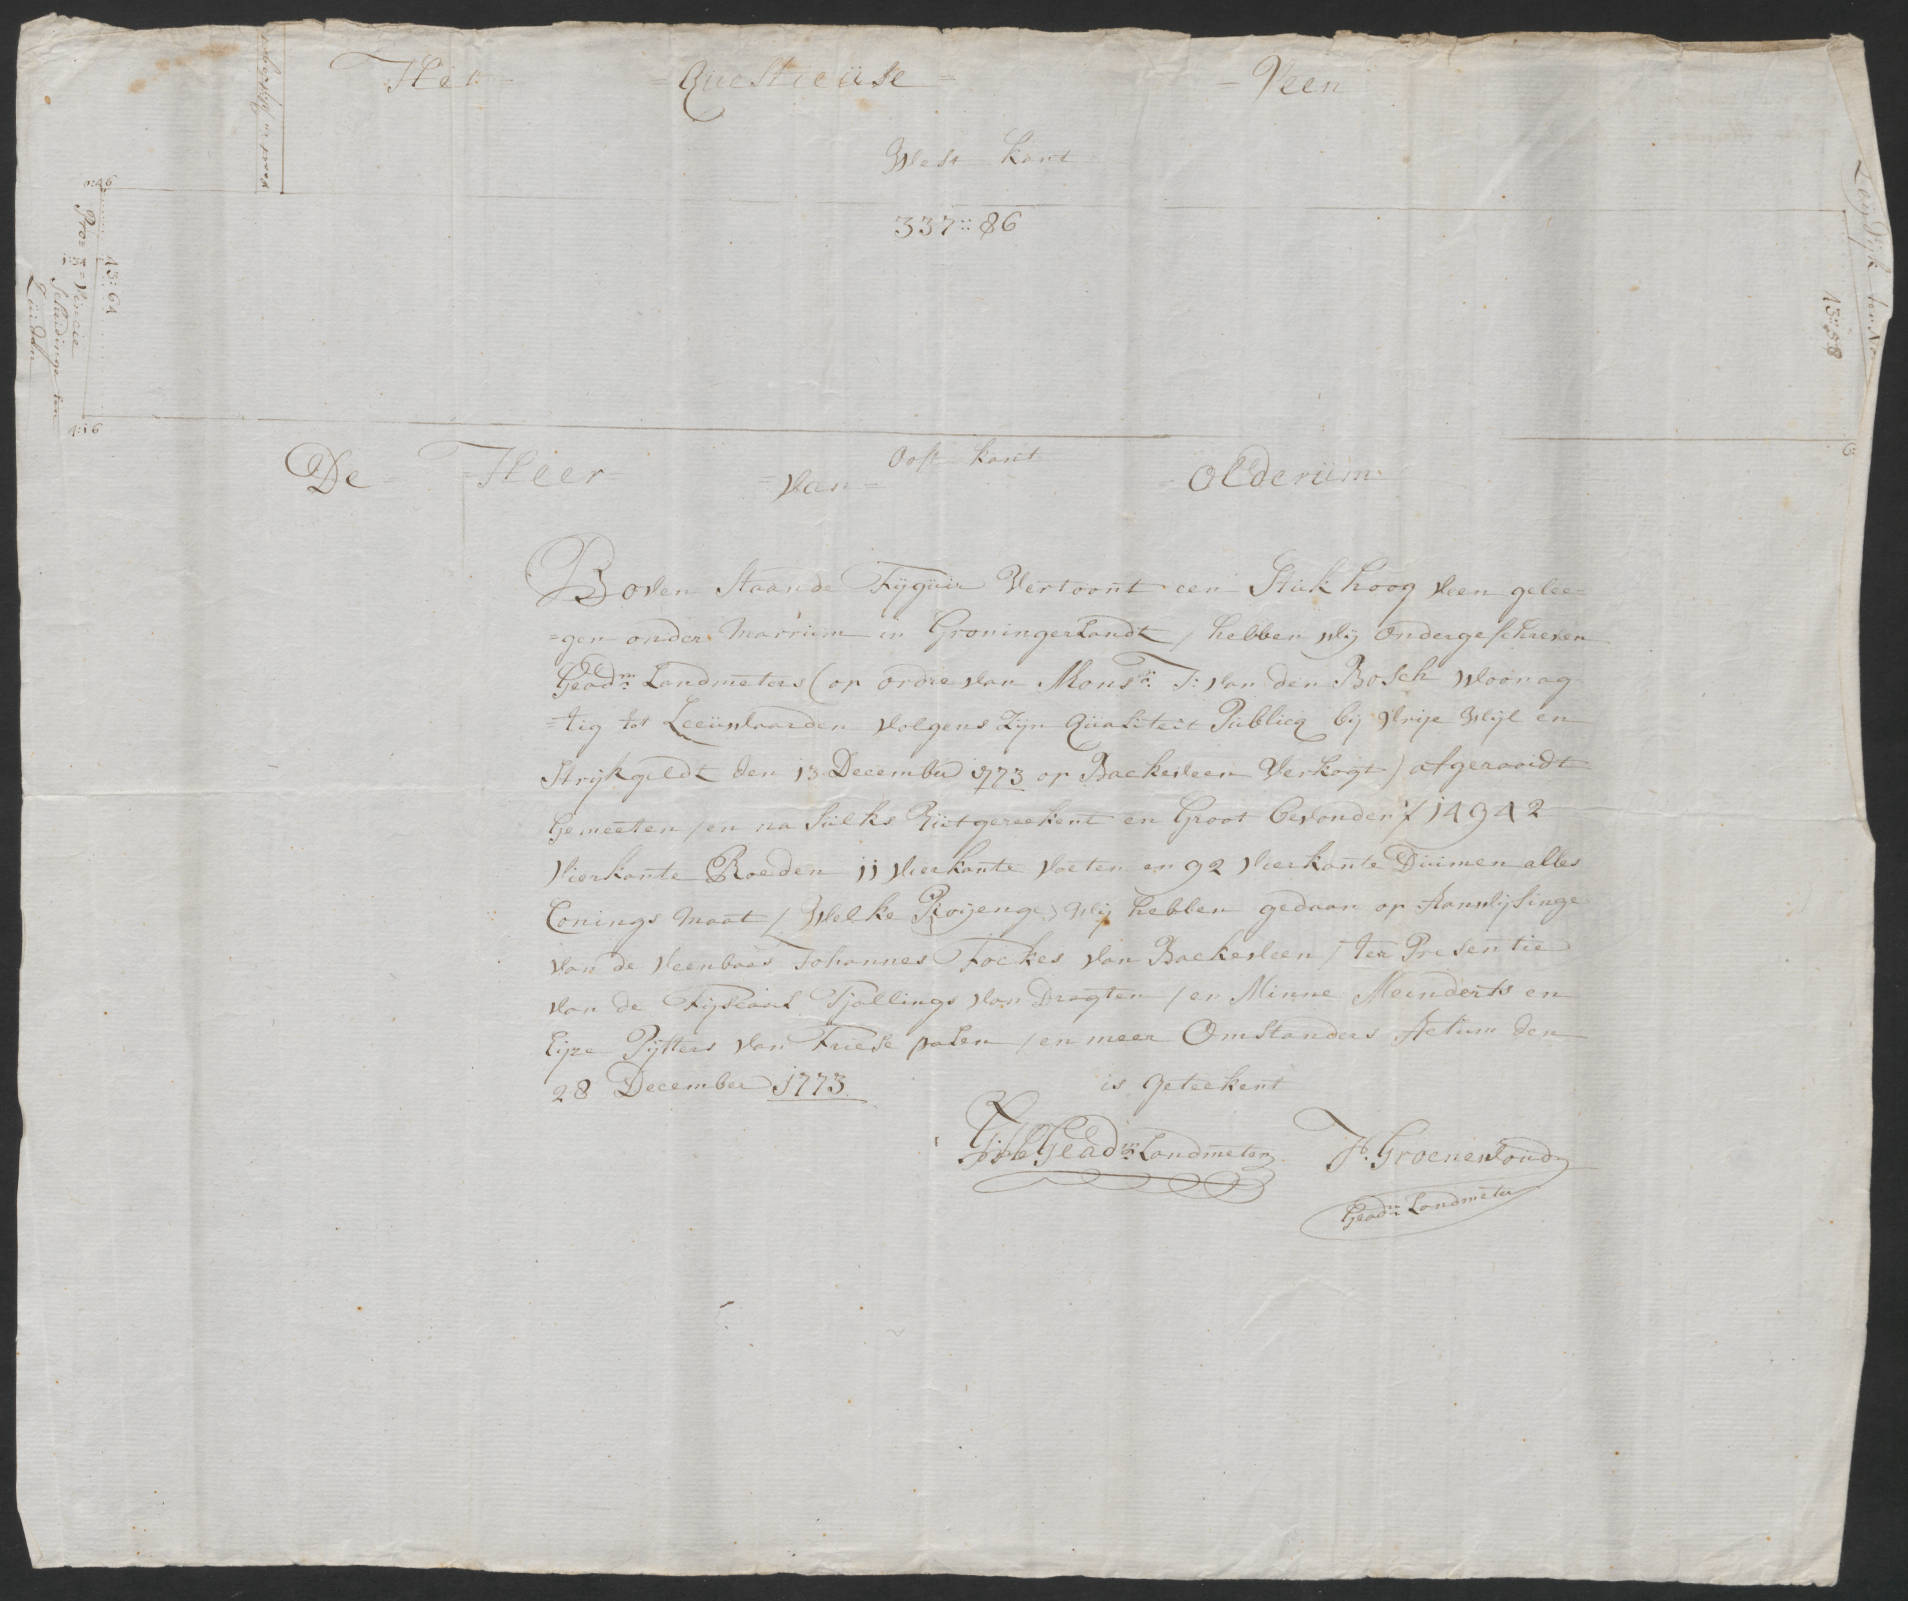 Het = = Questieuse = = Veen
West kant
337::86
Vaart en
0:46
43::64
Pro= =Vincie
Scheidinge ten
Zuiden
4:16
Leij Dijk ten No
43::58
Oost kant
De = = Heer = = van = = Olderüm
Boven Staande Fijgüir Vertoont een Stük hoog Veen gelee=
=gen onder Marrüm in Groningerlandt / hebben wij ondergeschreven
Geadm: Landmeters (op ordre van Monsr. J: van den Bosch woonag
=tig tot Leeüwaarden volgens Zijn Qüaliteit Püblicq bij Vrije Wijl en
Strijkgeldt den 13 December 1773 op Backeveen Verkogt) afgeraaidt
Gemeeten / en na Sülks Uütgereekent en Groot bevonden / 14942
Vierkante Roeden 11 Vierkante Voeten en 92 Vierkante Düimen alles
Conings Maat / Welke Roijenge wij hebben gedaan op Aanwijsinge
van de Veenbaas Johannes Fockes van Backeveen / ter Presentie
van de Fijscaal Tjallings van Dragten / en Minne Meinderts en
Eijze Pijtters van Friese palen / en meer Omstanders Actum den
28 December 1773.
is geteekent
Geadm: Landmeter
H. Groenewoud
Geadm: Landmeter